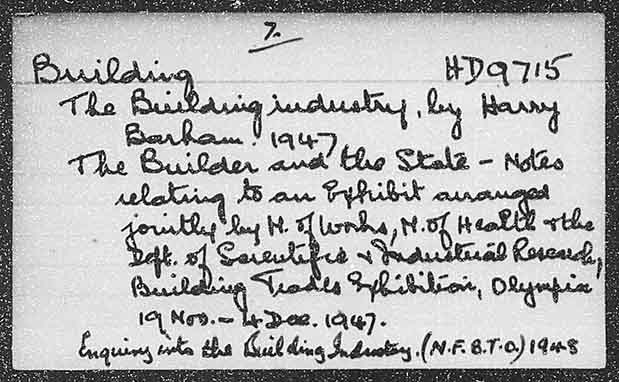 7.
Building HD9715
The Building industry, by Harry
Barham. 1947
The Builder and the State - Notes
relating to an Exhibit arranged
jointly by M. of Works, M. of Health & the
Dept. of Scientific & Industrial Research,
Building Trades Exhibition, Olympia
19 Nov. - 4 Dec. 1947.
Enquiry into the Building Industry. (N.F.B.T.O.) 1948